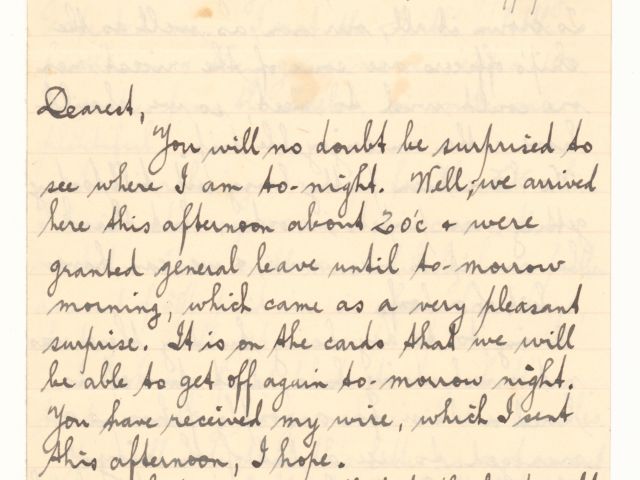 Dearest,
You will no doubt be surprised to
see where I am to-night. Well, we arrived
here this afternoon about 2 o'c + were
granted general leave until to-morrow
morning, which came as a very pleasant
surprise. It is on the cards that we will
be able to get off again to-morrow night.
You have received my wire, which I sent
this afternoon, I hope.